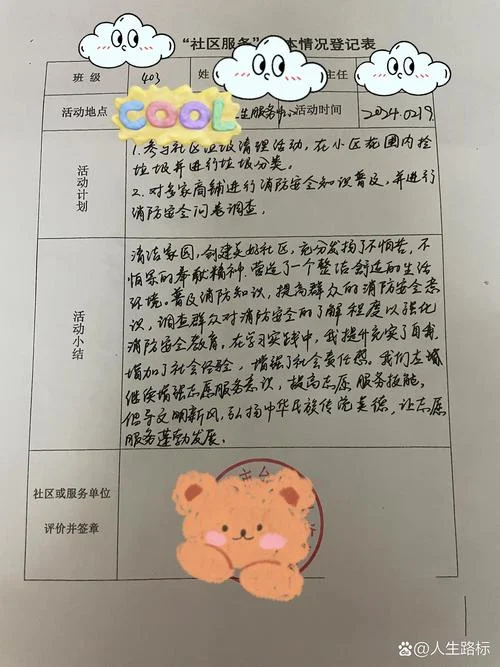 “社区服务”本情况登记表
班 级 403 姓 主任
活动地点 COOL 生服务中心 活动时间 2024.0219
活动计划
1.参与社区垃圾清理活动，在小区范围内捡
垃圾并进行垃圾分类。
2.对多家商铺进行消防安全知识普及，并进行
消防安全问卷调查。
活动小结
清洁家园，创建美好社区，充分发扬了不怕苦，不
怕累的奉献精神，营造了一个整洁舒适的生活
环境。普及消防知识，提高群众的消防安全意
识，调查群众对消防安全的了解程度以强化
消防安全教育。在学习实践中，我提升充实了自我，
增加了社会经验，增强了社会责任感。我们应当
继续增强志愿服务意识，拔高志愿服务技能。
倡导文明新风，弘扬中华民族传统美德，让志愿
服务蓬勃发展。
社区或服务单位
评价并签章
百家号@人生路标